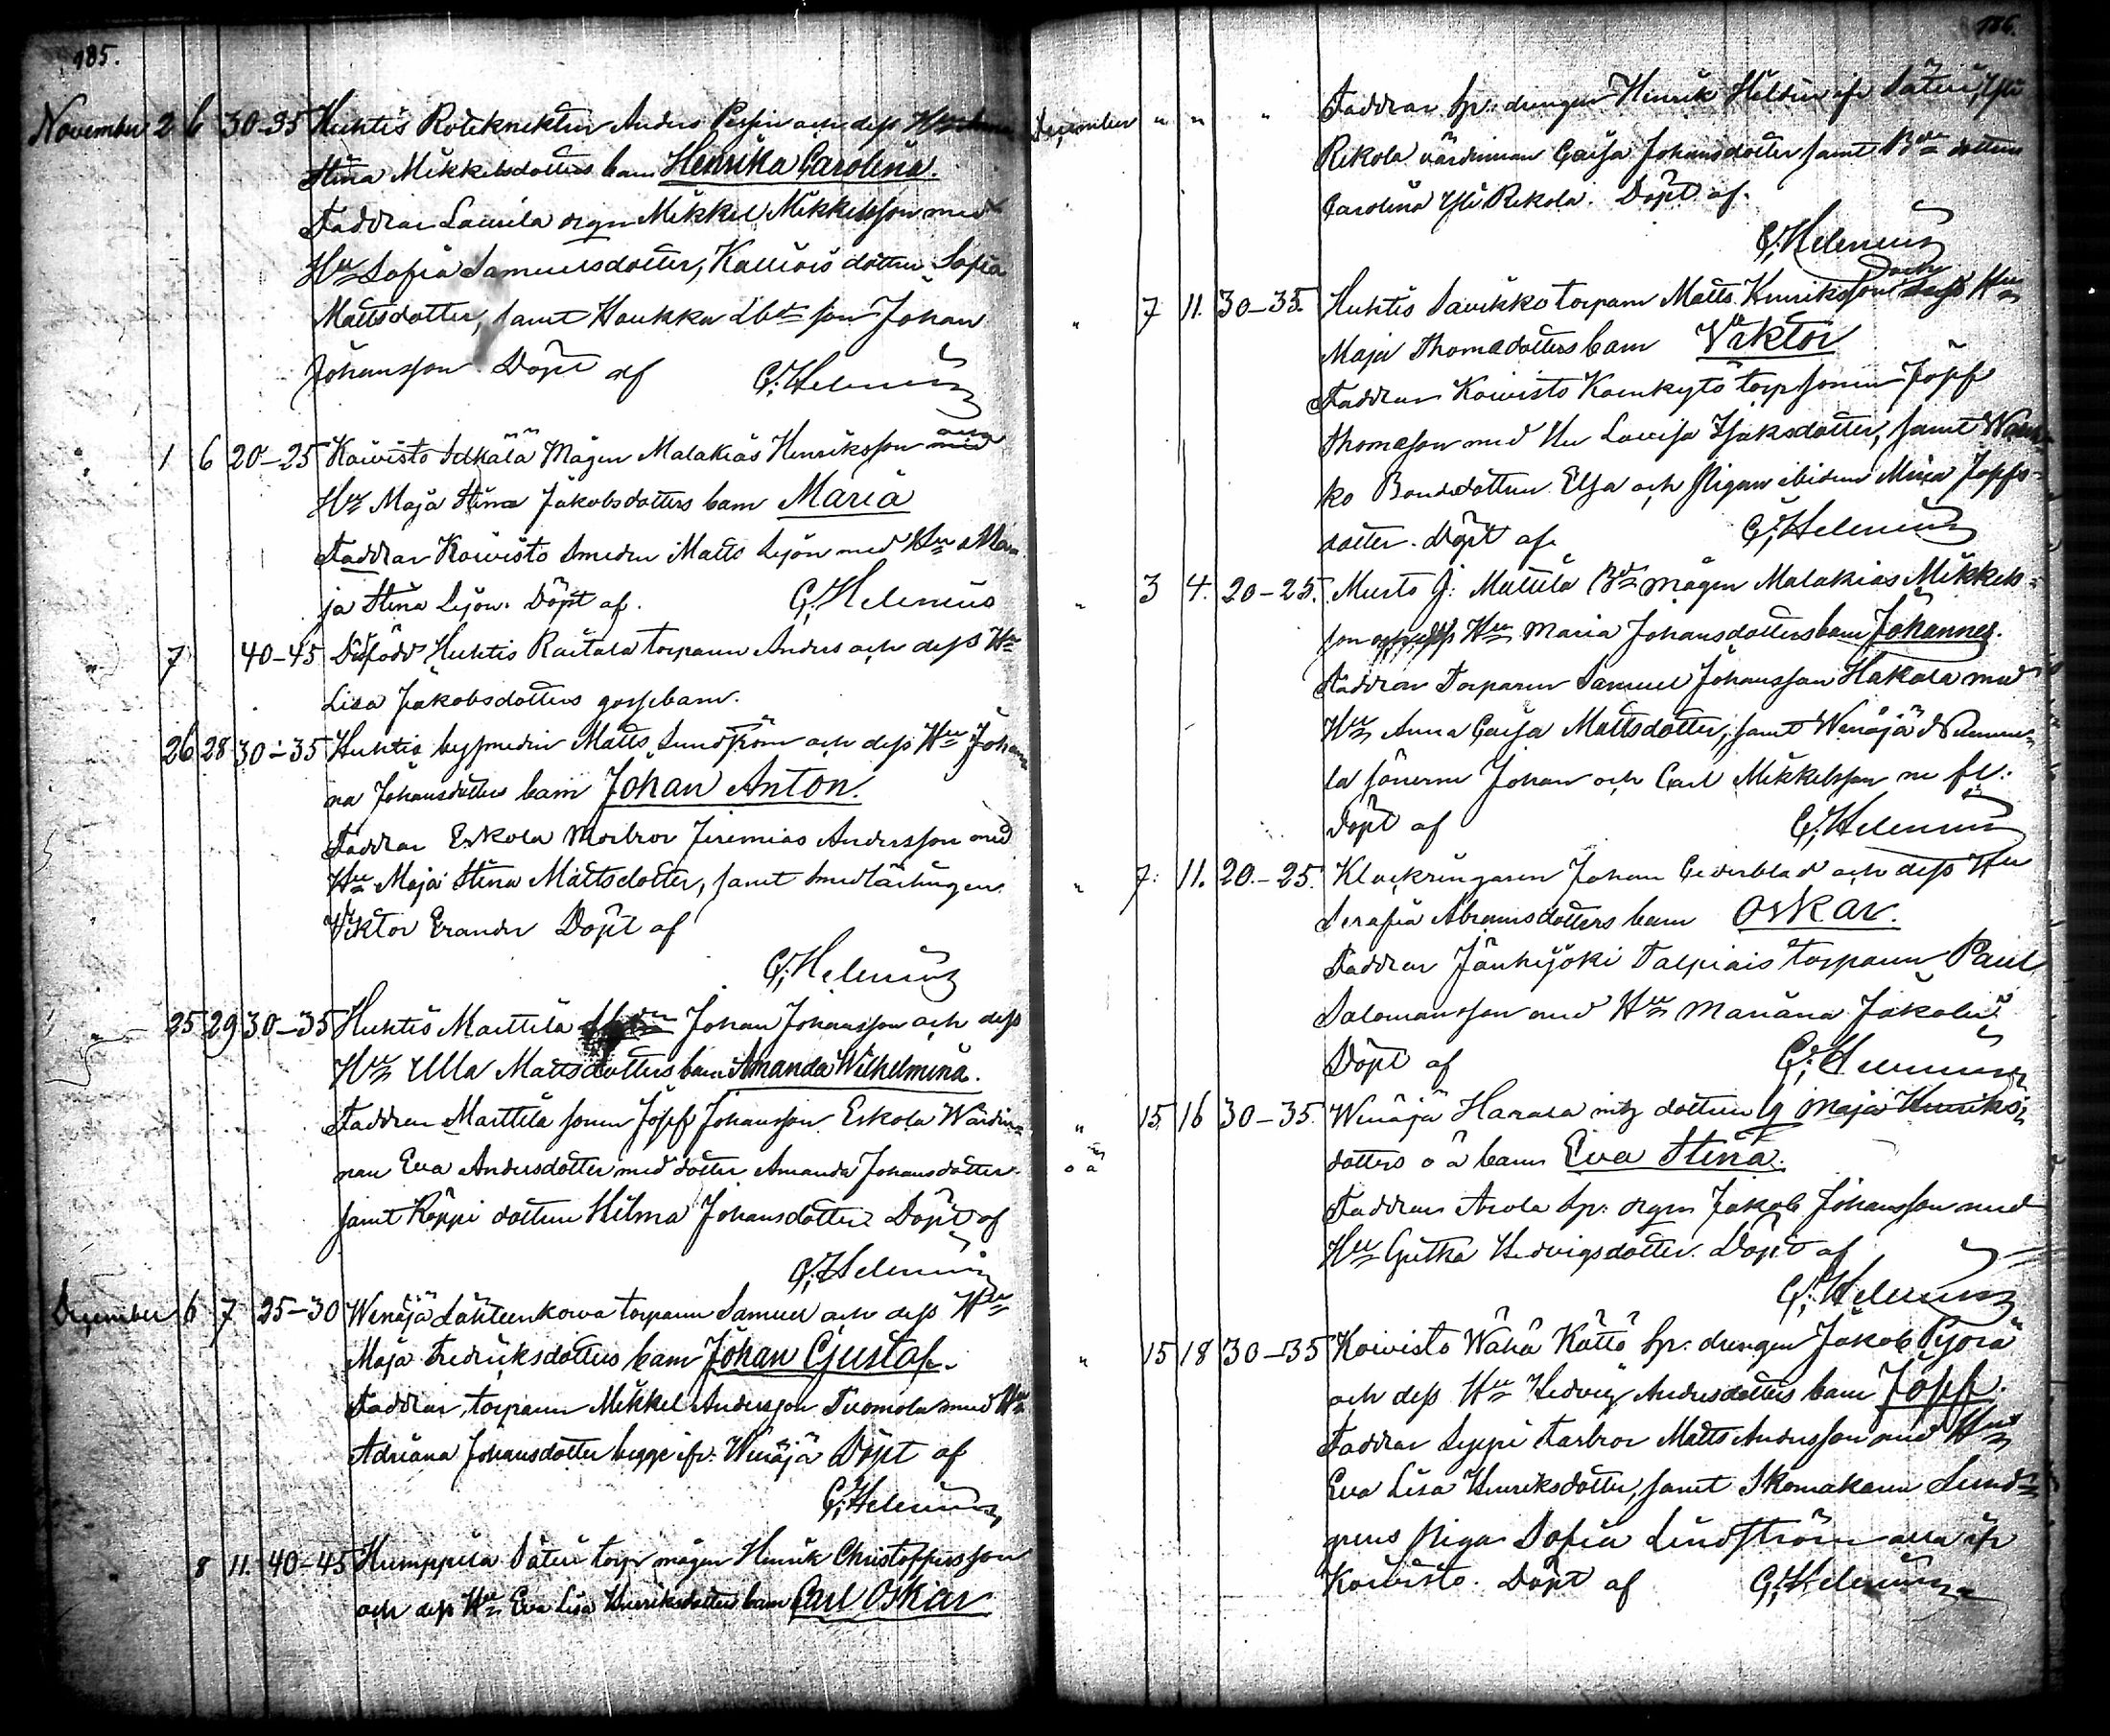 185.
November 2 6 30-35 Huhtis Roteknekten Anders Persson och dess Hu
Stina Mikkelsdotters barn Henrika Carolina.
Faddrar Laurila drgn Mikkel Mikkelsson med
Hu Sofia Samuelsdotter, dottren Sofia
Mattsdotter, samt son Johan
Johansson. Döpt af G. Helenius
" 1 6 20-25 Koivisto Mågen Malakias Henriksson med
Hu Maja Stina Jakobsdotters barn Maria
Faddrar Koivisto Smeden Matts Lejon med Hu Ma
ja Stina Lejon. Döpt af. G. Helenius
7 40-45 Dödfödd Huhtis Raitala torparen Anders och dess Hu
Lisa Jakobsdotters gossebarn.
26 28 30-35 Huhtis bysmeden Matts Lundström och dess Hu Johan
na Johansdotters barn Johan Anton.
Faddrar Eskola Morbror Jeremias Andersson med
Hu Maja Stina Mattsdotter, samt Smedlärlingen
Viktor Erander Döpt af
G. Helenius
25 29 30-35 Huhtis Marttila Johan Johansson och dess
Hu Ulla Mattsdotters barn Amanda Wilhelmina.
Faddrar Marttila sonen Josef Johansson Eskola Wärdin-
nan Eva Andersdotter med dotter Amanda Johansdotter
samt Röppi dottren Hilma Johansdotter Döpt af
G. Helenius
December 6 7 25-30 Wenäjä Lähteenkorva torparen Samuel och dess Hu
Maja Fredriksdotters barn Johan Gustaf.
Faddrar, torparen Mikkel Andersson Tuomola med Hu
Adriana Johansdotter begge ifr. Wenäjä Döpt af
G. Helenius
8 11. 40-45 Humppila Säteri torp mågen Henrik Christoffersson
och dess Hu Eva Lisa Henriksdotters barn Carl Oskar
186.
December " " " Faddrar Sp: drengen Henrik Helsten ifr Säteri, Yli
Rekola värdinnan Cajsa Johansdotter samt Bde dottren
Carolina Yli Rekola. Döpt af.
G. Helenius
" 7 11. 30-35. Huhtis Savikko torparn Matts Henriksson och dess Hu
Maja Thomadotters barn Viktor
Faddrar Koivisto torpsonen Josef
Thomasson med Hu Lovisa Isaksdotter, samt
ko Bondedottren Elsa och Pigan ibidem Maja Josefs-
dotter. Döpt af. G. Helenius
" 3 4. 20-25. Murto J: Mattila Bde mågen Malakias Mikkels-
son och dess Hu Maria Johansdotters barn Johannes.
Faddrar Torparen Samuel Johansson Hakala med
Hu Anna Cajsa Mattsdotter, samt Wenäjä Numme-
la sönerne Johan och Carl Mikkelsson
Döpt af G. Helenius
" 7. 11. 20-25. Klockringaren Johan Cederblad och dess Hu
Serafia Abramsdotters barn Oskar.
Faddrar Jänhijoki Talpiais torparen Paul
Salomansson med Hu Mariana Jakobsd
Döpt af G. Helenius
" 15 16 30-35. Wenäjä Harala dottren Maja Henriks-
oä dotters o ä barn Eva Stina.
Faddrar Arola Sp: drgn Jakob Johansson med
Hu Gretha Hedvigsdotter. Döpt af
G. Helenius
" 15 18 30-35 Koivisto Wähä Köttö Sp: drengen Jakob Pyörä
och dess Hu Hedvig Andersdotters barn Josef.
Faddrar Seppi Farbror Matts Andersson med Hu
Eva Lisa Henriksdotter, samt Skomakaren Lund-
grens Piga Sofia Lindström alla ifr
Koivisto. Döpt af G. Helenius